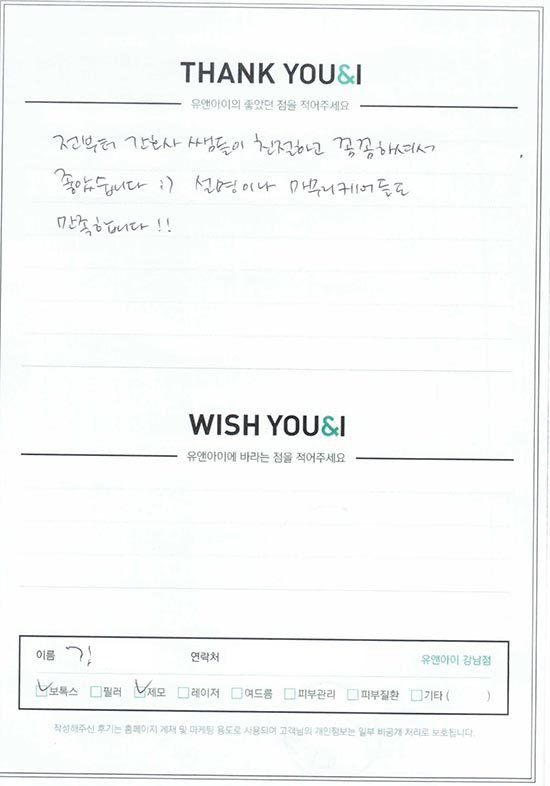 THANK YOU&I
유앤아이의 좋았던 점을 적어주세요
전부터 간호사 쌤들이 친절하고 꼼꼼하셔서
좋았습니다 :) 설명이나 마무리케어들도
만족합니다!!
WISH YOU&I
유앤아이에 바라는 점을 적어주세요
이름 김 연락처 유앤아이 강남점
보톡스 필러 제모 레이저 여드름 피부관리 피부질환 기타 ( )
작성해주신 후기는 홈페이지 게재 및 마케팅 용도로 사용되며 고객님의 개인정보는 일부 비공개 처리로 보호됩니다.